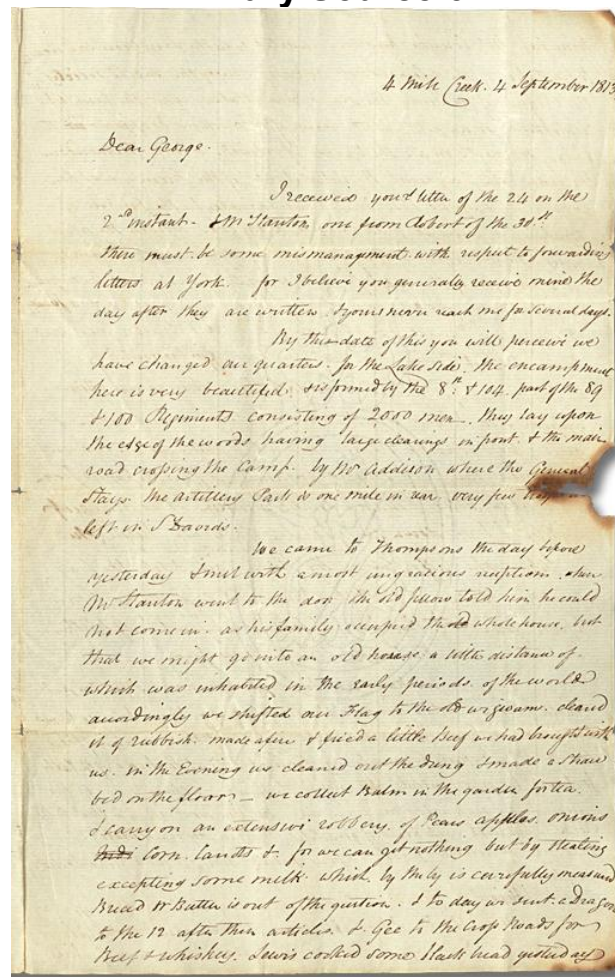 4 Mile Creek. 4 September 1813
Dear George.
I received your letter of the 24 on the
2nd instant - & Mr Stanton one from Robert of the 30th
there must be some mismanagement with respect to forwarding
letters at York. for I believe you generally receive mine the
day after they are written & yours never reach me for several days.
By the date of this you will perceive we
have changed our quarters. for the Lake side, the encampment
here is very beautiful & is formed by the 8th & 104. part of the 89
& 100 Regiments consisting of 2000 men. they lay upon
the edge of the woods having large clearings in front & the main
road crossing the Camp. by Mr Addison where the General
stays. the artillery Park is one mile in rear. very few
left in St Davids.
We came to Thompsons the day before
yesterday & met with a most ungracious reception. when
Mr Stanton went to the door the old fellow told him he could
not come in. as his family occupied the old whole house. but
that we might go into an old house a little distance of.
which was inhabited in the early periods of the world
accordingly we shifted our Flag to the old wigwam. cleared
it of rubbish. made a fire & fried a little Beef we had brought with
us. in the Evening we cleaned out the dung & made a straw
bed on the floor - we collect Balm in the garden for tea.
& carry on an extensive robbery of Pears apples. onions
Corn. Carrots &. for we can get nothing but by stealing
excepting some milk. which by the by is carefully measured
Bread & Butter is out of the question. & to day we sent a Dragoon
to the 12 after these articles. & Gee to the Cross Roads for
Beef & whiskey. Lewis cooked some black bread yesterday